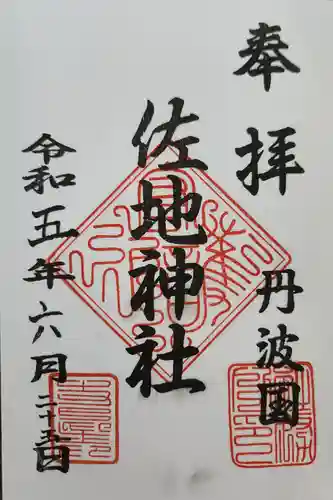 奉拝
丹波国
佐地神社
令和五年六月二十五日